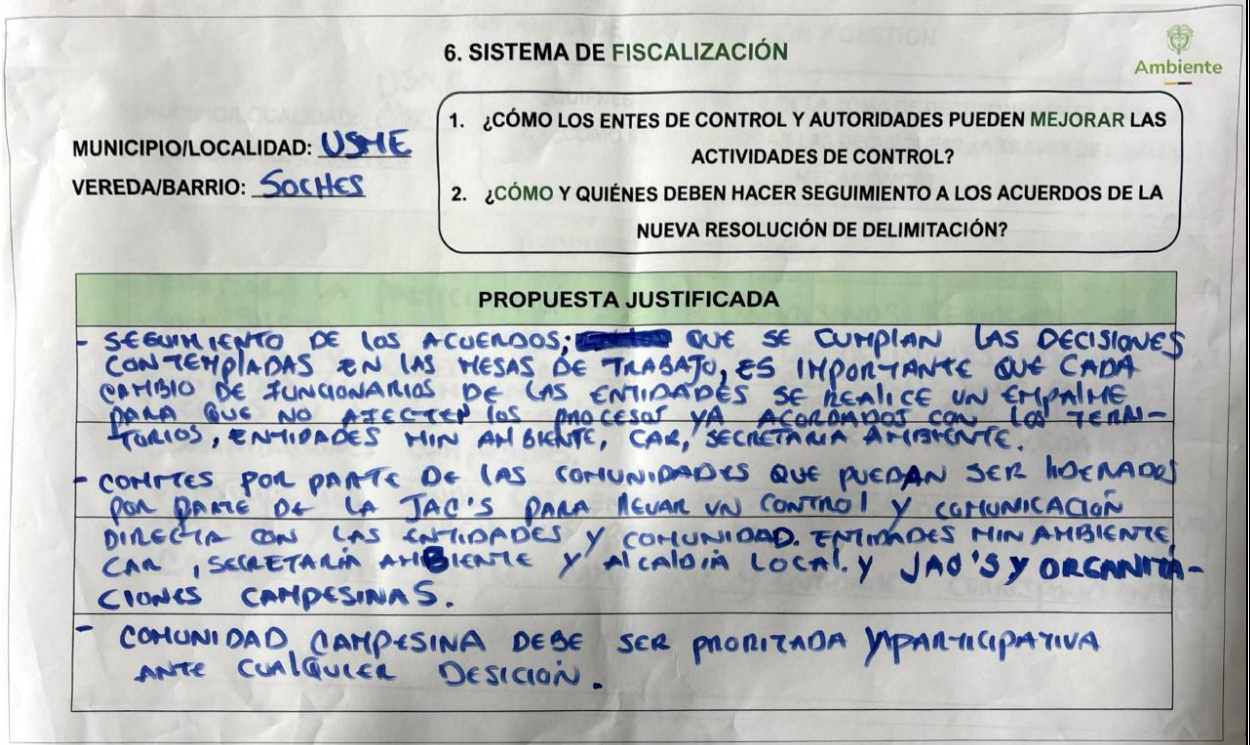 6. SISTEMA DE FISCALIZACIÓN
Ambiente
MUNICIPIO/LOCALIDAD: USME
VEREDA/BARRIO: SOCHES
1. ¿CÓMO LOS ENTES DE CONTROL Y AUTORIDADES PUEDEN MEJORAR LAS
ACTIVIDADES DE CONTROL?
2. ¿CÓMO Y QUIÉNES DEBEN HACER SEGUIMIENTO A LOS ACUERDOS DE LA
NUEVA RESOLUCIÓN DE DELIMITACIÓN?
PROPUESTA JUSTIFICADA
- SEGUIMIENTO DE LOS ACUERDOS; QUE SE CUMPLAN LAS DECISIONES
CONTEMPLADAS EN LAS MESAS DE TRABAJO, ES IMPORTANTE QUE CADA
CAMBIO DE FUNCIONARIOS DE LAS ENTIDADES SE REALICE UN EMPALME
PARA QUE NO AFECTEN LOS PROCESOS YA ACORDADOS CON LOS TERRI-
TORIOS, ENTIDADES MIN AMBIENTE, CAR, SECRETARIA AMBIENTE.
- COMITES POR PARTE DE LAS COMUNIDADES QUE PUEDAN SER LIDERADOS
POR PARTE DE LA JAC'S PARA LLEVAR UN CONTROL Y COMUNICACIÓN
DIRECTA CON LAS ENTIDADES Y COMUNIDAD. ENTIDADES MIN AMBIENTE,
CAR, SECRETARÍA AMBIENTE Y ALCALDIA LOCAL. Y JAC'S Y ORGANIZA-
CIONES CAMPESINAS.
- COMUNIDAD CAMPESINA DEBE SER PRORITADA Y PARTICIPATIVA
ANTE CUALQUIER DESICIÓN.